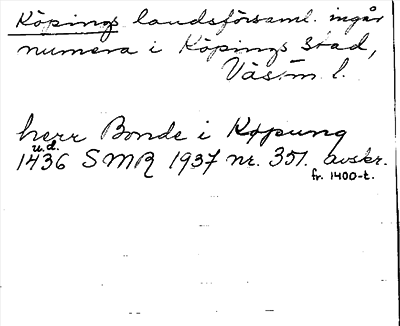 Köpings landsförsaml. ingår
numera i Köpings stad,
Västm l.
herr Bonde i Köpung
u.d.
1436 SMR 1937 nr. 351. avskr.
fr. 1400-t.